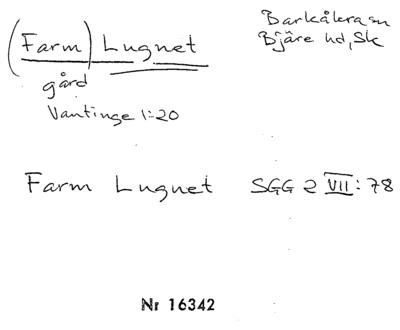 (Farm) Lugnet
gård
Vantinge 1:20
Barkåkra sn
Bjäre hd, Sk
Farm Lugnet SGG 2 VII: 78
Nr 16342